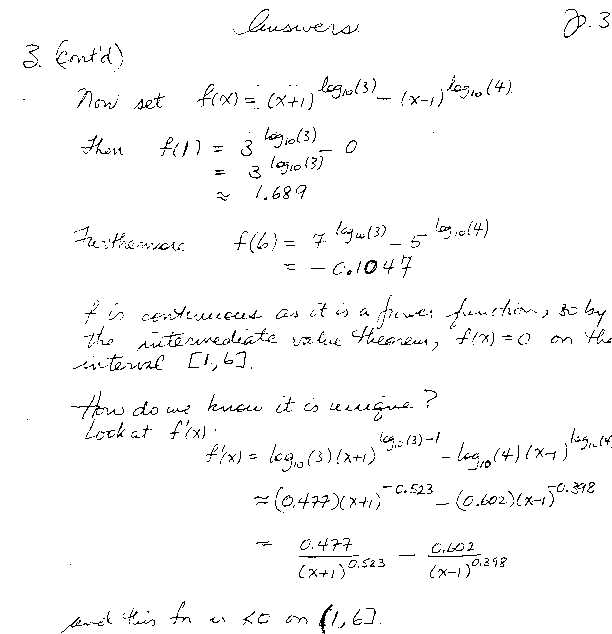 Answers p. 3
3. (cont'd)
Now set f(x) = (x+1)^log₁₀(3) − (x−1)^log₁₀(4)
Then f(1) = 3^log₁₀(3) − 0
= 3^log₁₀(3)
≈ 1.689
Furthermore f(6) = 7^log₁₀(3) − 5^log₁₀(4)
= −0.1047
f is continuous as it is a power function, so by
the intermediate value theorem, f(x)=0 on the
interval [1,6].
How do we know it is unique?
Look at f'(x).
f'(x) = log₁₀(3)(x+1)^log₁₀(3)−1 − log₁₀(4)(x−1)^log₁₀(4
≈ (0.477)(x+1)^−0.523 − (0.602)(x−1)^−0.398
≈ 0.477/(x+1)^0.523 − 0.602/(x−1)^0.398
and this fn is <0 on (1,6].